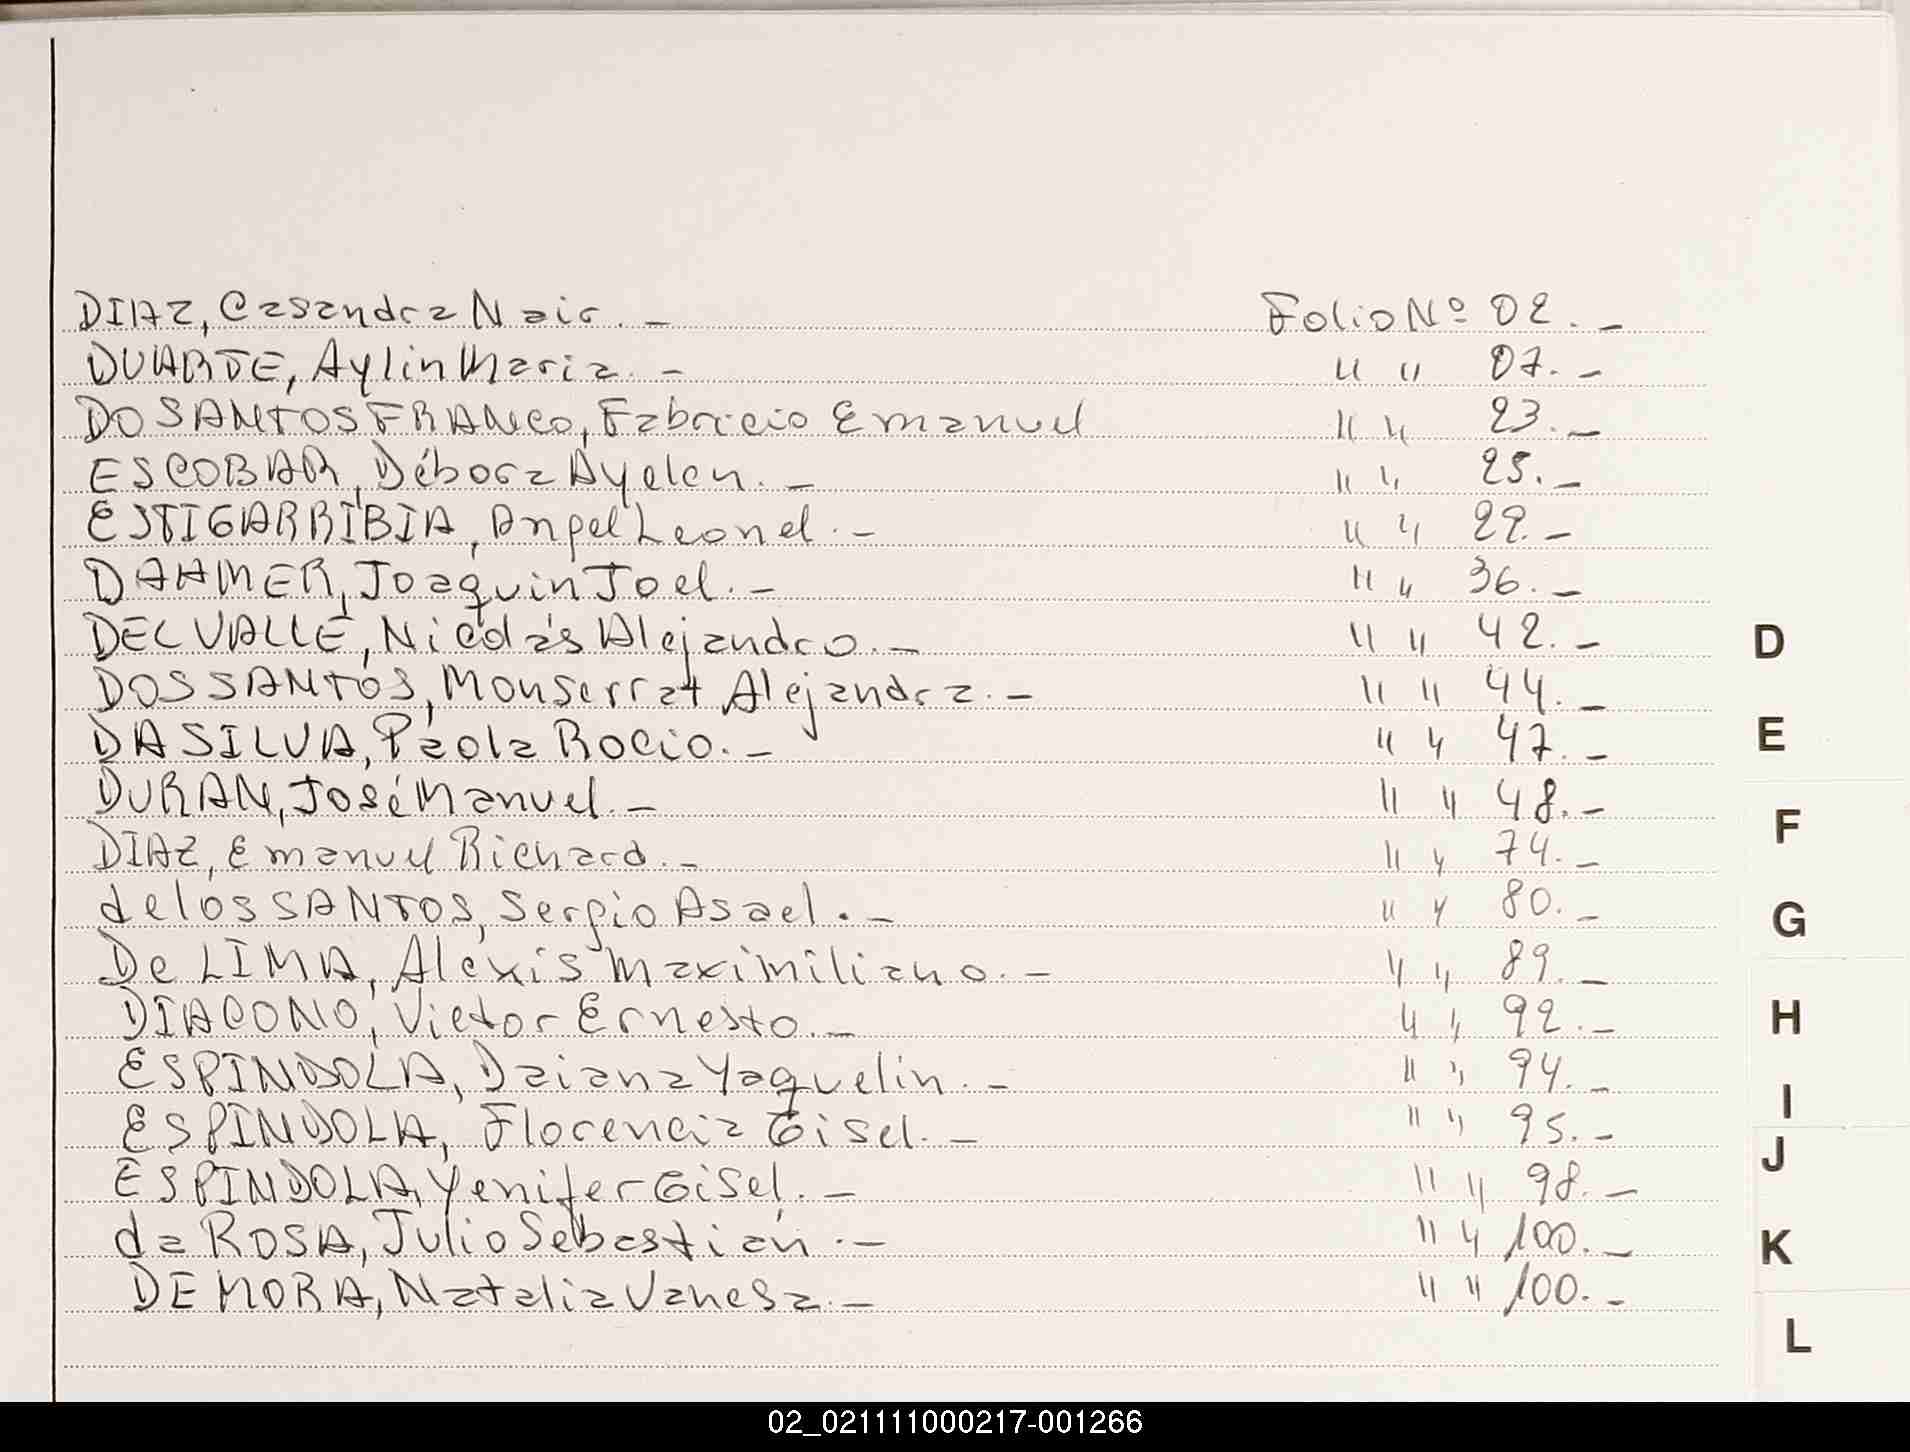 DIAZ, Casandra Nair.- Folio Nº 02.-
DUARTE, Aylin Maria.- " " 07.-
DO SANTOS FRANCO, Fabricio Emanuel " " 23.-
ESCOBAR, Débora Ayelen.- " " 25.-
ESTIGARRIBIA, Angel Leonel.- " " 29.-
DAHMER, Joaquin Joel.- " " 36.-
DEL VALLE, Nicolás Alejandro.- " " 42.-
DOS SANTOS, Monserrat Alejandra.- " " 44.-
DA SILVA, Paola Rocio.- " " 47.-
DURAN, José Manuel.- " " 48.-
DIAZ, Emanuel Richard.- " " 74.-
de los SANTOS, Sergio Asael.- " " 80.-
De LIMA, Alexis Maximiliano.- " " 89.-
DIACONO, Victor Ernesto.- " " 92.-
ESPINDOLA, Daiana Yaquelin.- " " 94.-
ESPINDOLA, Florencia Gisel.- " " 95.-
ESPINDOLA, Yenifer Gisel.- " " 98.-
da ROSA, Julio Sebastián.- " " 100.-
DE MORA, Natalia Vanesa.- " " 100.-
D
E
F
G
H
I
J
K
L
02_021111000217-001266